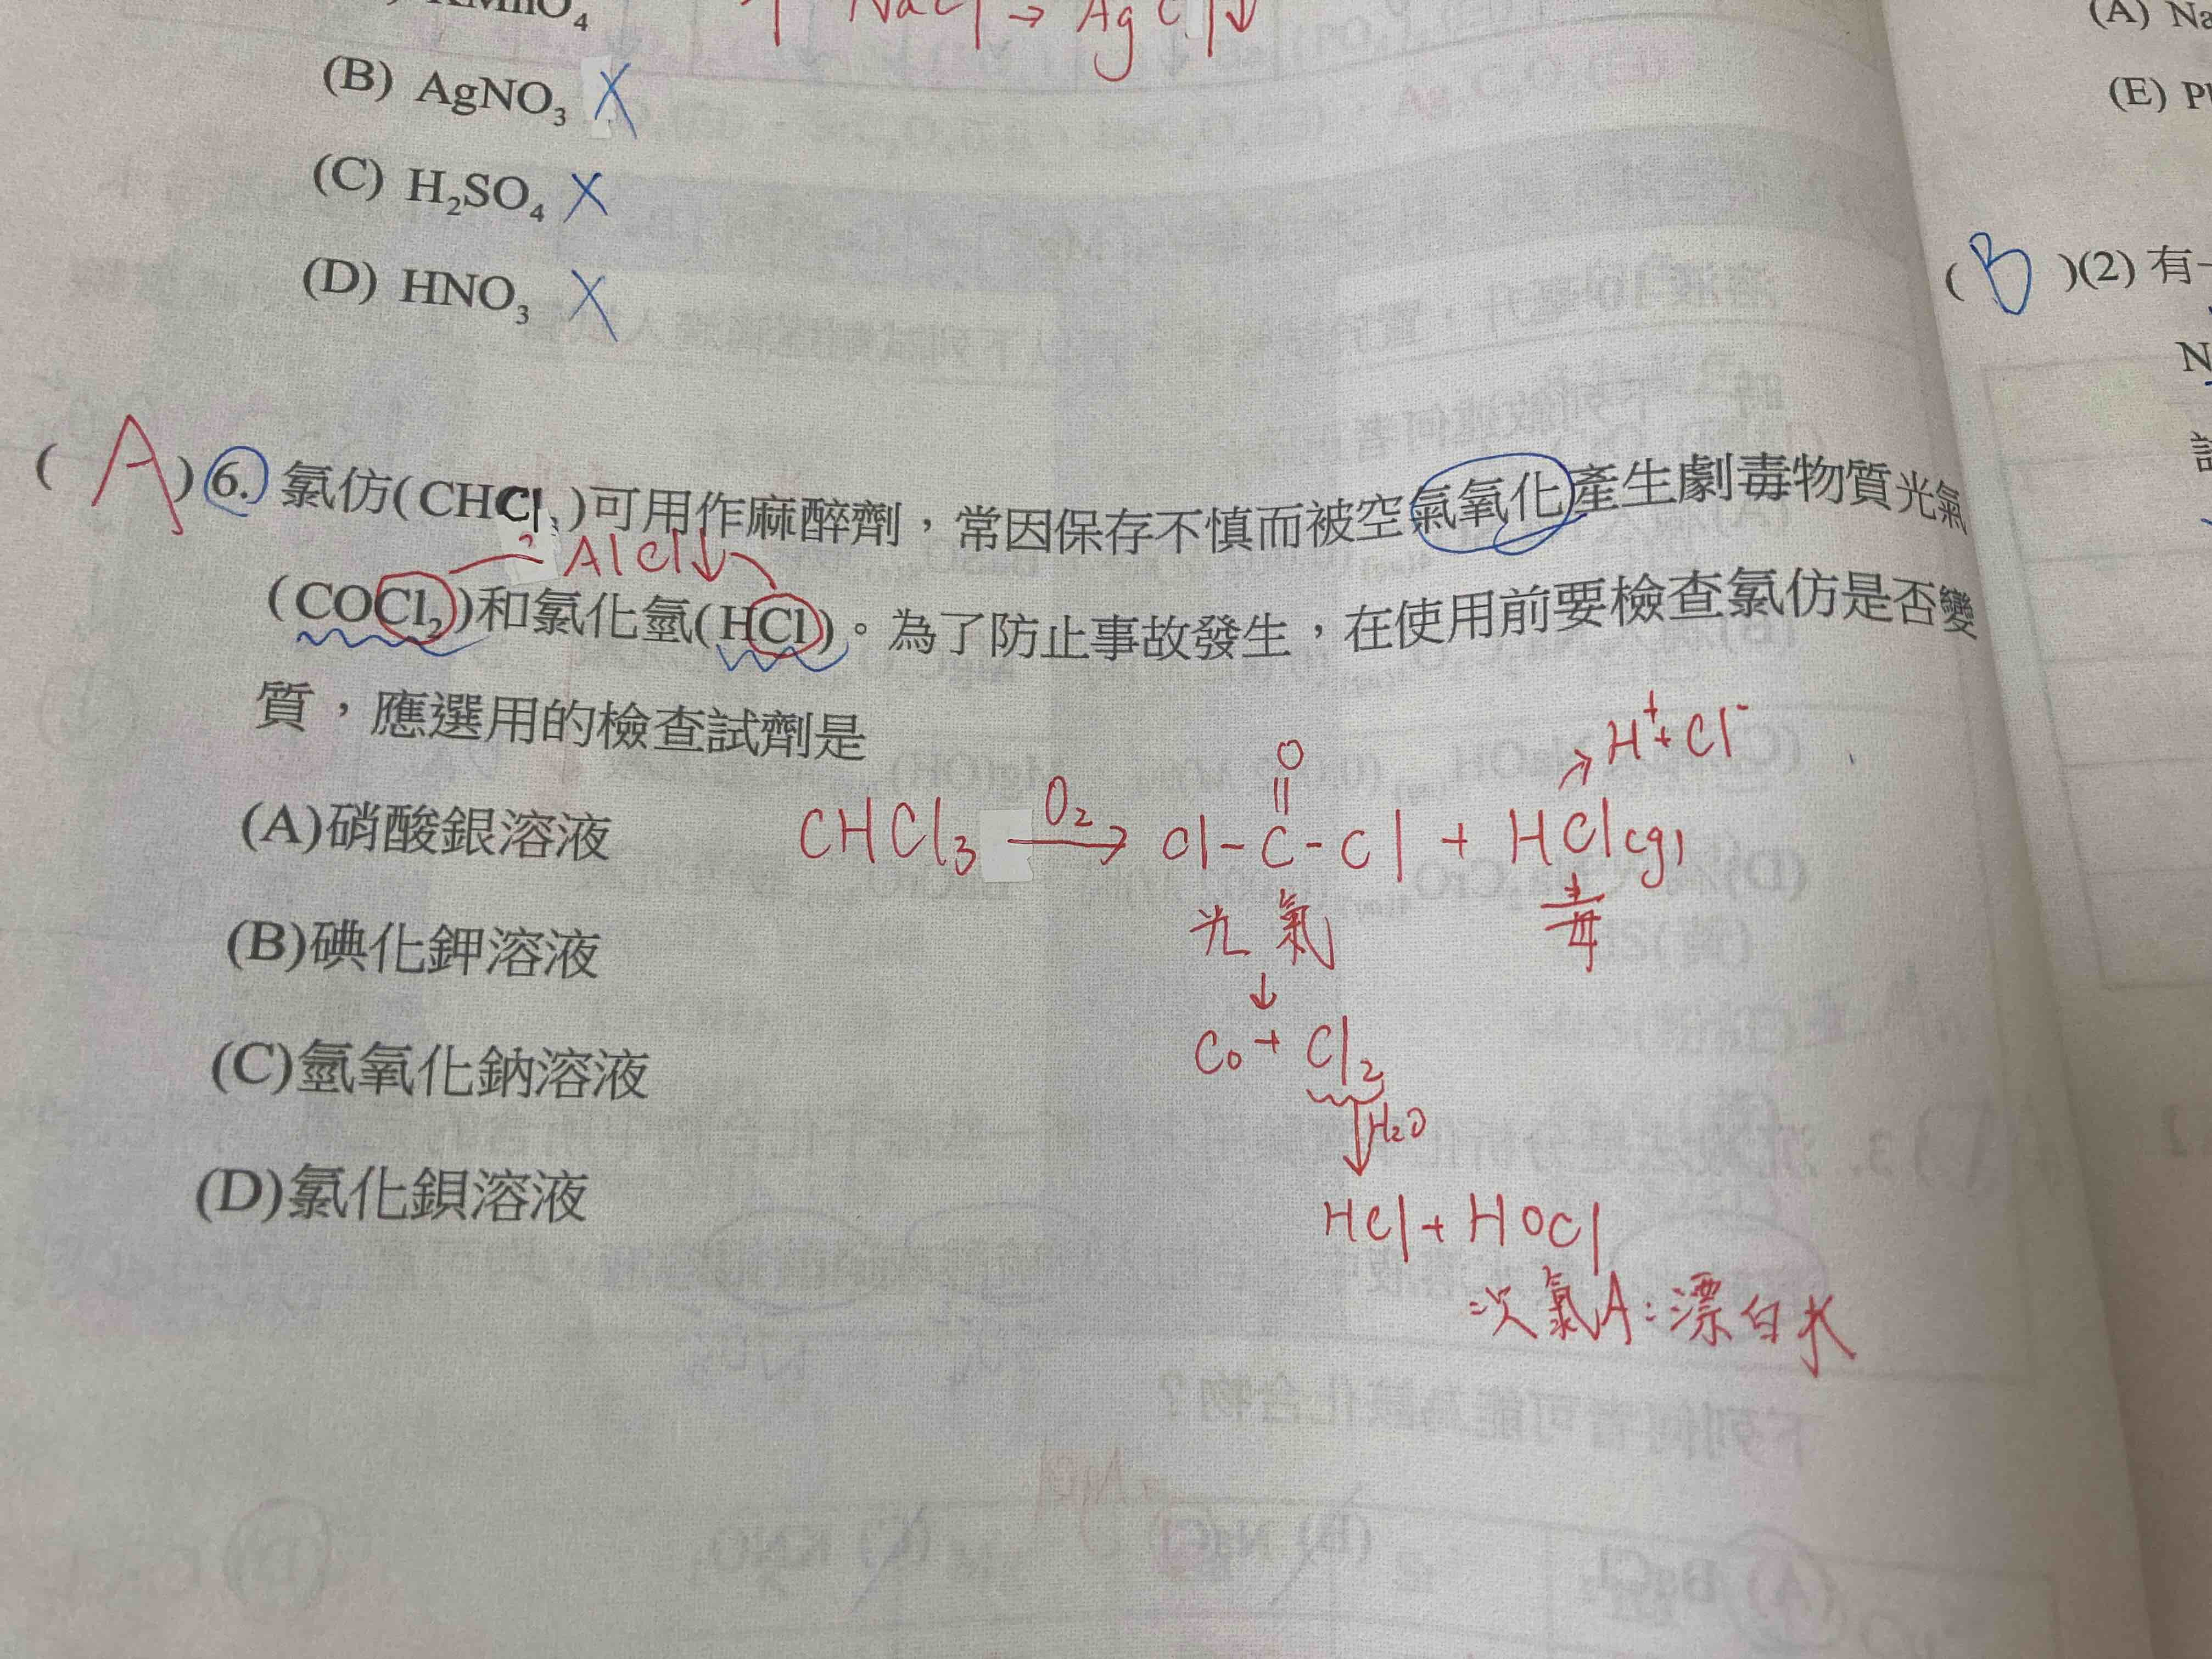 KMnO4
NaCl → AgCl↓
(B) AgNO3 X
(C) H2SO4 X
(D) HNO3 X
(A)6. 氯仿(CHCl3)可用作麻醉劑，常因保存不慎而被空氣氧化產生劇毒物質光氣
AlCl↓
(COCl2)和氯化氫(HCl)。為了防止事故發生，在使用前要檢查氯仿是否變
質，應選用的檢查試劑是
H+ + Cl-
(A)硝酸銀溶液
O
CHCl3 O2→ Cl-C-Cl + HCl(g)
光氣
毒
(B)碘化鉀溶液
↓
CO + Cl2
(C)氫氧化鈉溶液
↓H2O
(D)氯化鋇溶液
HCl + HOCl
次氯A:漂白水
(A) Na
(E) P
(B)(2) 有一
N